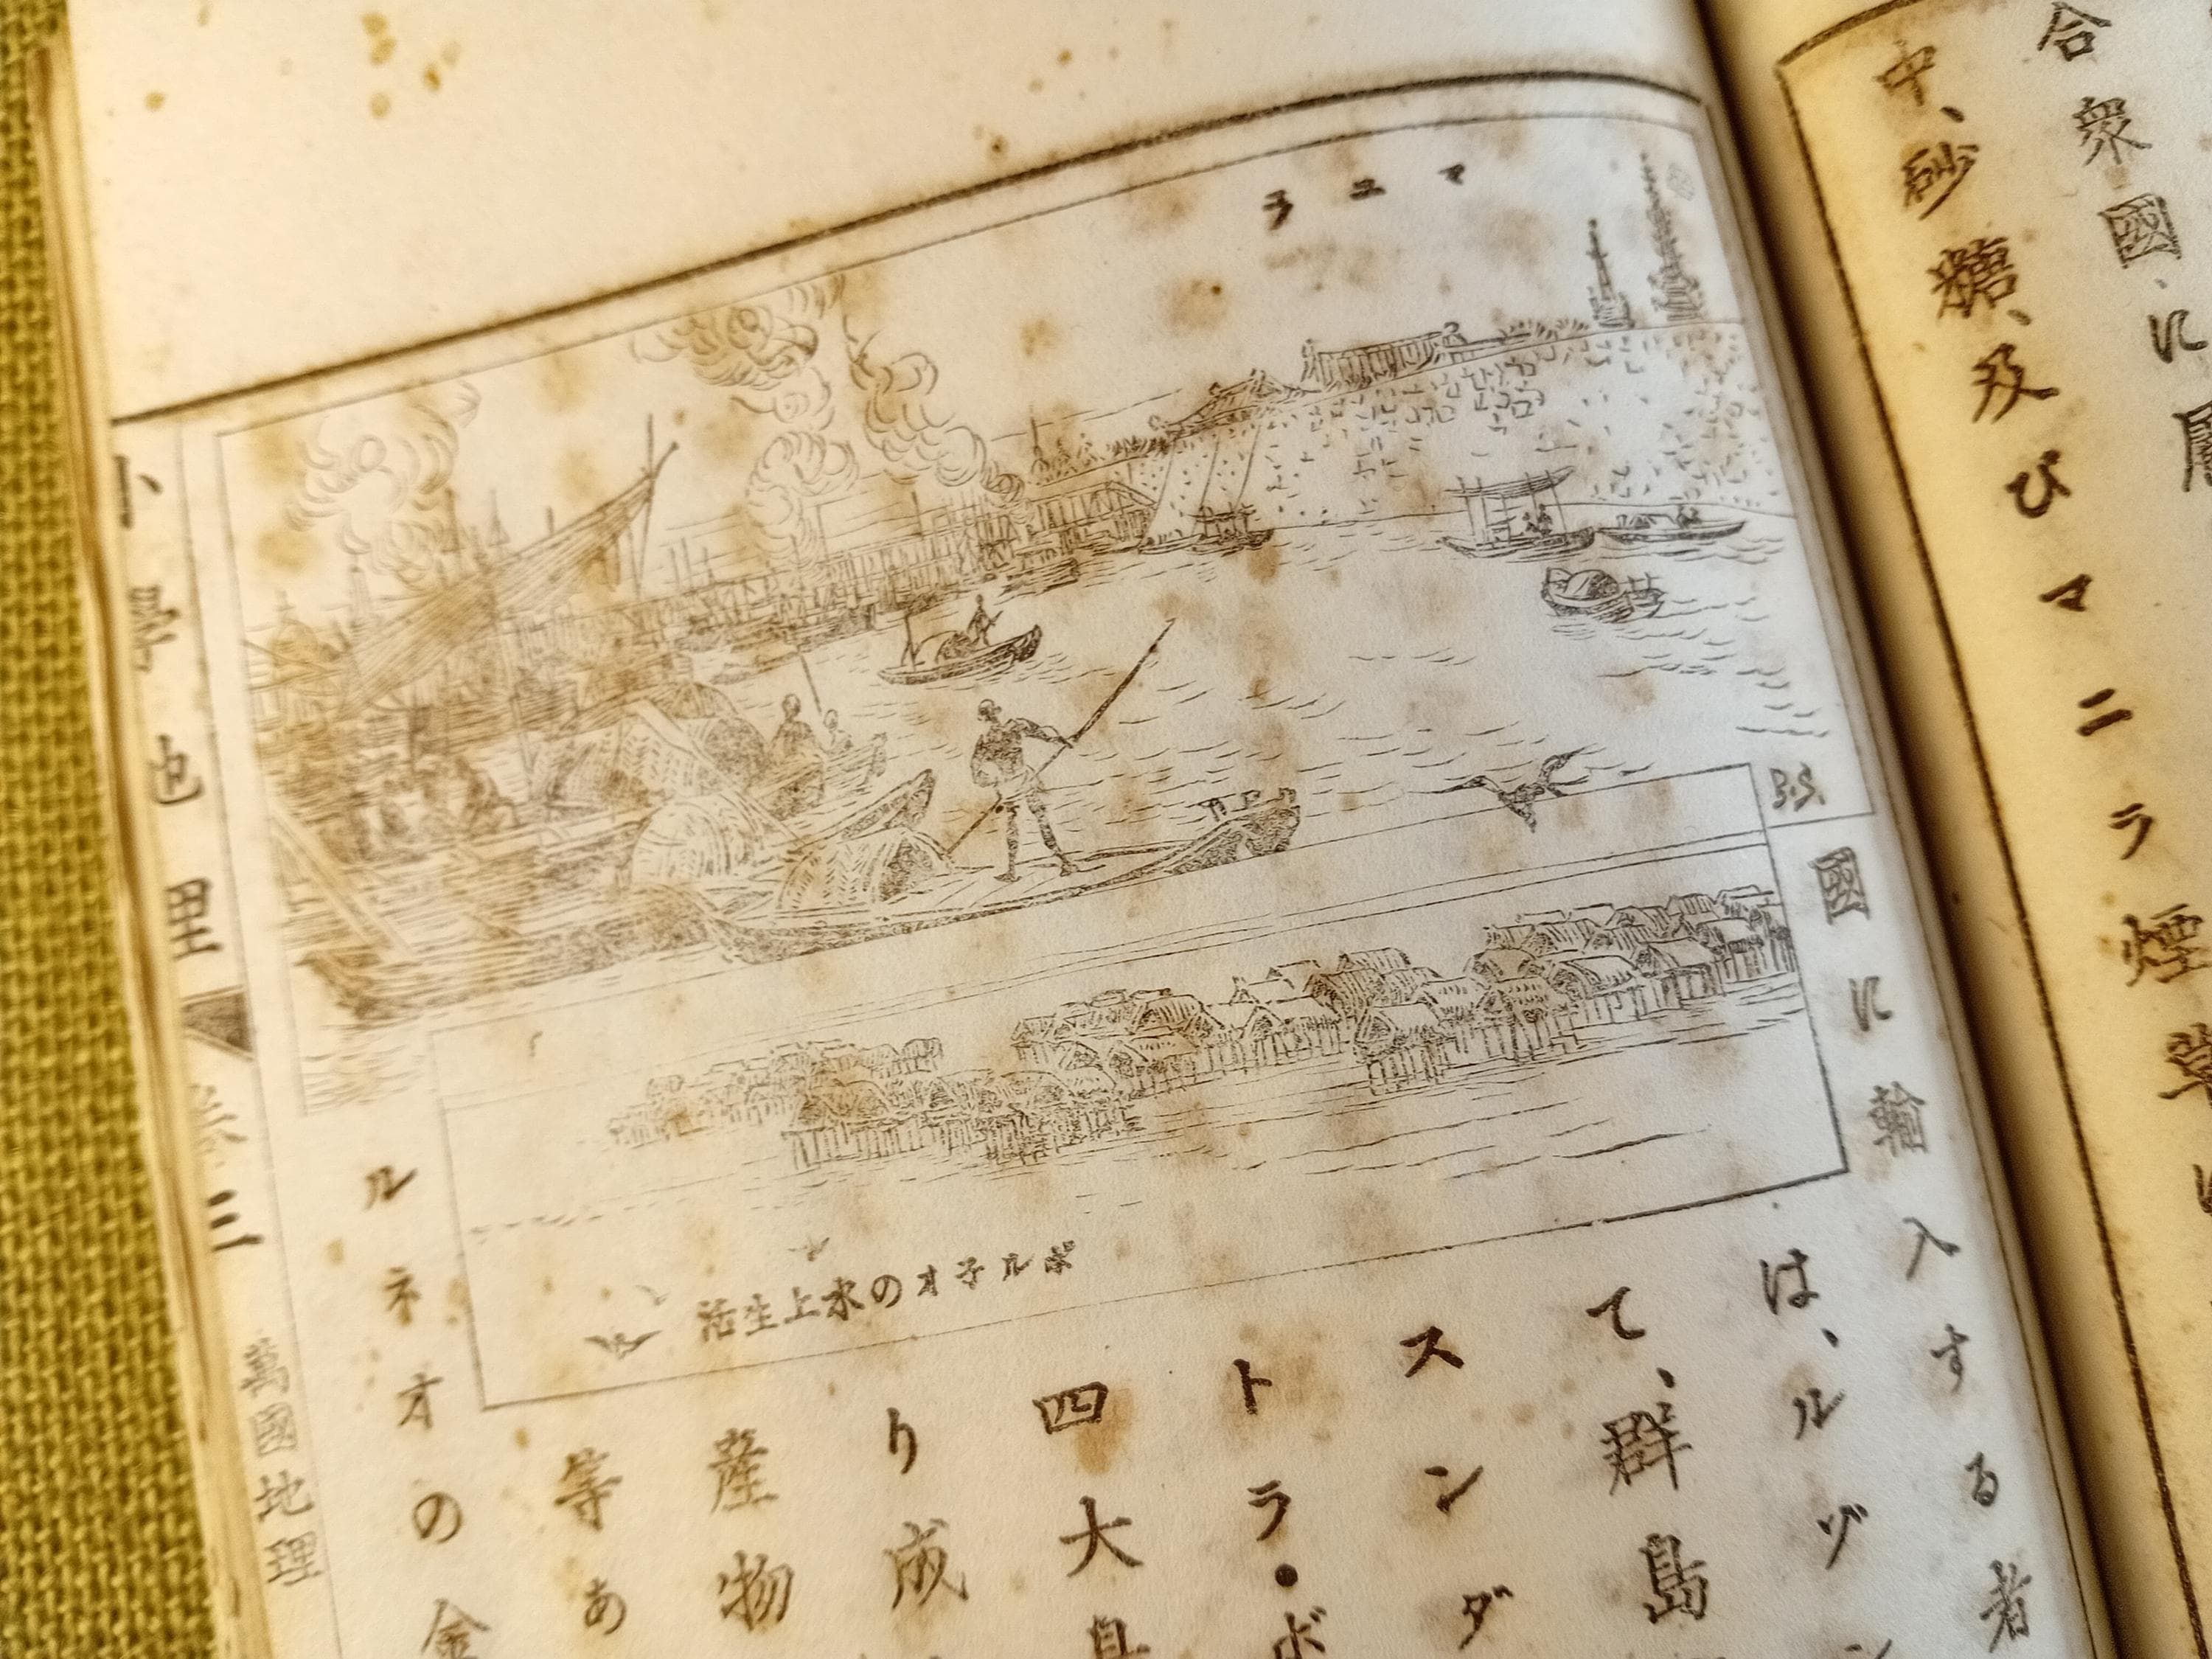 合衆國に屬
中、砂糖、及びマニラ煙草
マニラ
B.S.
ボル子オの水上生活
國に輸入する者
は、ルゾン
て、群島
スンダ
トラ・ボ
四大島
り成
産物
等あ
ルネオの金
小學地理 卷三 萬國地理